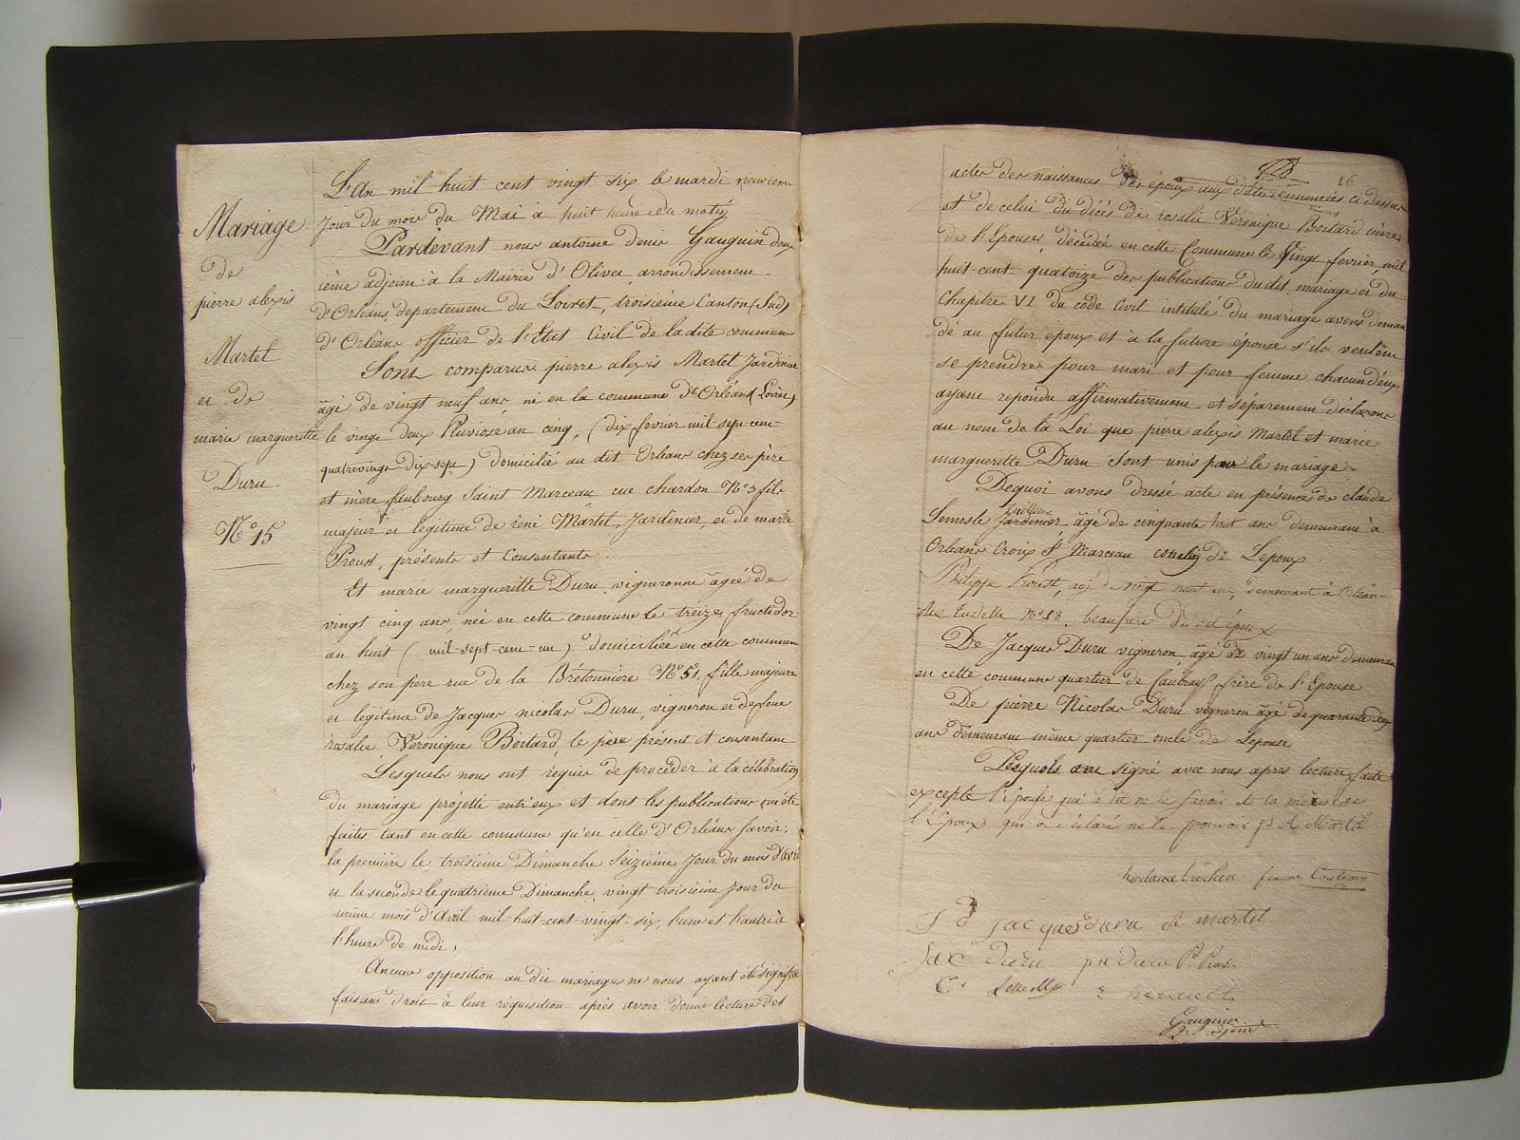 Mariage
de
pierre alexis
Martel
et de
marie margueritte
Duru
N° 15
L'an mil huit cent vingt six le mardi neuvieme
Jour du mois du Mai à huit heures du matin
Pardevant nous antoine denis Gauguin deux
ième adjoint à la Mairie d'Olivet arrondissement
d'Orléans, departement du Loiret, troisieme Canton (Sud)
d'Orléans officier de l'Etat Civil de ladite commune
Sont comparus pierre alexis Martel Jardinier
âgé de vingt neuf ans, né en la commune d'Orléans (Loiret)
le vingt deux Pluviose an cinq, (dix février mil sept cent
quatrevingt dix-sept) domicilié au dit Orléans chez ses père
et mère faubourg Saint Marceau rue chardon N° 3 fils
majeur et legitime de réné Martel, Jardinier, et de marie
Proust, présents et Consentants
Et marie margueritte Duru, vigneronne âgée de
vingt cinq ans, née en cette commune le treize fructidor
an huit ( mil-sept-cent-un ) domiciliée en cette commune
chez son père rue de la Brétonnière N° 51, fille majeure
et légitime de Jacques nicolas Duru, vigneron et de feue
rosalie Véronique Bertard, le père présent et consentant
Lesquels nous ont requis de procéder à la célébration
du mariage projetté entr'eux et dont les publications ont été
faites tant en cette commune qu'en celle d'Orléans savoir;
la première le troisieme Dimanche Seizieme Jour du mois d'avril
et la seconde le quatrième Dimanche, vingt troisieme jour du
même mois d'Avril mil huit cent vingt-six, l'une et l'autre à
l'heure de midi,
Aucune opposition au dit mariage ne nous ayant été signifiée
faisant droit à leur réquisition après avoir donné lecture des
16
actes des naissances des époux aux dates énoncées ci dessus
et de celui du décès de rosalie Véronique Bertard mère
de l'Epouse, décédée en cette Commune le Vingt fevrier mil
huit-cent quatorze des publications dudit mariage et du
Chapitre VI du code Civil intitulé du mariage avons deman
dé au futur époux et à la future épouse s'ils veulent
se prendre pour mari et pour femme chacun d'eux
ayant répondu affirmativement et séparement déclarons
au nom de la Loi que pierre alexis Martel et marie
margueritte Duru Sont unis par le mariage
Dequoi avons dressé acte en présence de claude
Jardinier âgé de cinquante huit ans demeurant à
Orleans Croix St Marceau de Lepoux
Philippe âgé de neuf ans, demeurant à Orléans
rue Tudelle N° 58, beaufrere du dit époux
De Jacques Duru vigneron âgé de vingt un ans demeurant
en cette commune quartier de frère de l'Epouse
De pierre Nicolas Duru vigneron âgé de quarante deux
ans demeurant même quartier oncle de Lepouse
Lesquels ont signé avec nous apres lecture faite
excepté l'épouse qui a dit ne le savoir et la mère de
l'Epoux qui a déclaré ne le pouvoir
jacques duru Martel
duru
Gauguin